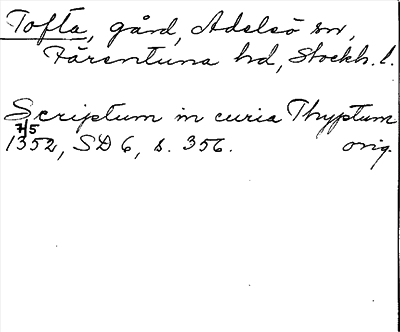 Tofta, gård, Adelsö sn,
Färentuna hd, Stockh. l.
Scriptum in curia Thyptum
7/5
1352, SD 6, s. 356. orig.